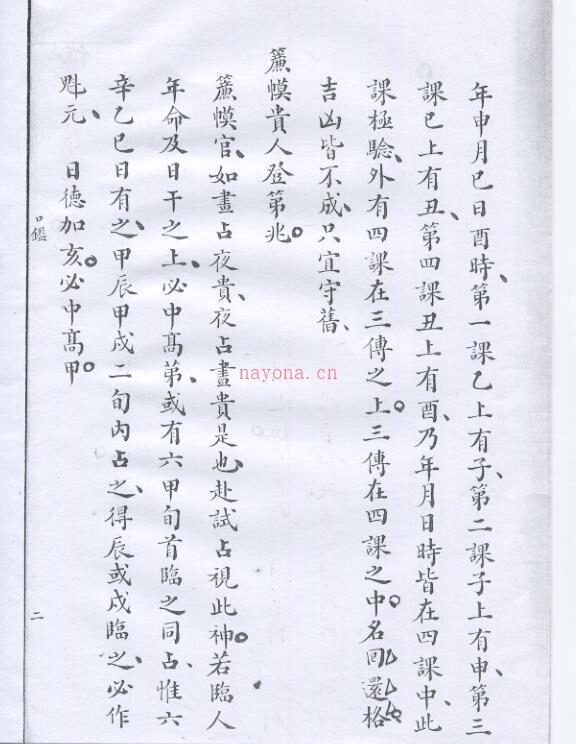 年申月巳日酉時、第一課乙上有子、第二課子上有申、第三
課巳上有丑、第四課丑上有酉、乃年月日時皆在四課中、此
課極驗、外有四課在三傳之上。三傳在四課之中。名回還格
吉凶皆不成、只宜守舊、
簾幙貴人登第兆。
簾幙官、如晝占夜貴、夜占晝貴是也、赴試占視此神。若臨人
年命及日干之上、必中高第、或有六甲旬首臨之同占、惟六
辛乙巳日有之、甲辰甲戌二旬內占之、得辰或戌臨之、必作
魁元、 日德加亥。必中高甲。
口鑑
二
nayona.cn